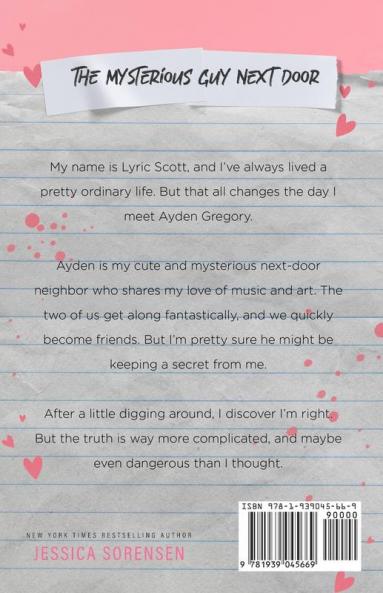 THE MYSTERIOUS GUY NEXT DOOR
My name is Lyric Scott, and I've always lived a
pretty ordinary life. But that all changes the day I
meet Ayden Gregory.
Ayden is my cute and mysterious next-door
neighbor who shares my love of music and art. The
two of us get along fantastically, and we quickly
become friends. But I'm pretty sure he might be
keeping a secret from me.
After a little digging around, I discover I'm right.
But the truth is way more complicated, and maybe
even dangerous than I thought.
ISBN 978-1-939045-66-9
90000
NEW YORK TIMES BESTSELLING AUTHOR
JESSICA SORENSEN
9 781939 045669